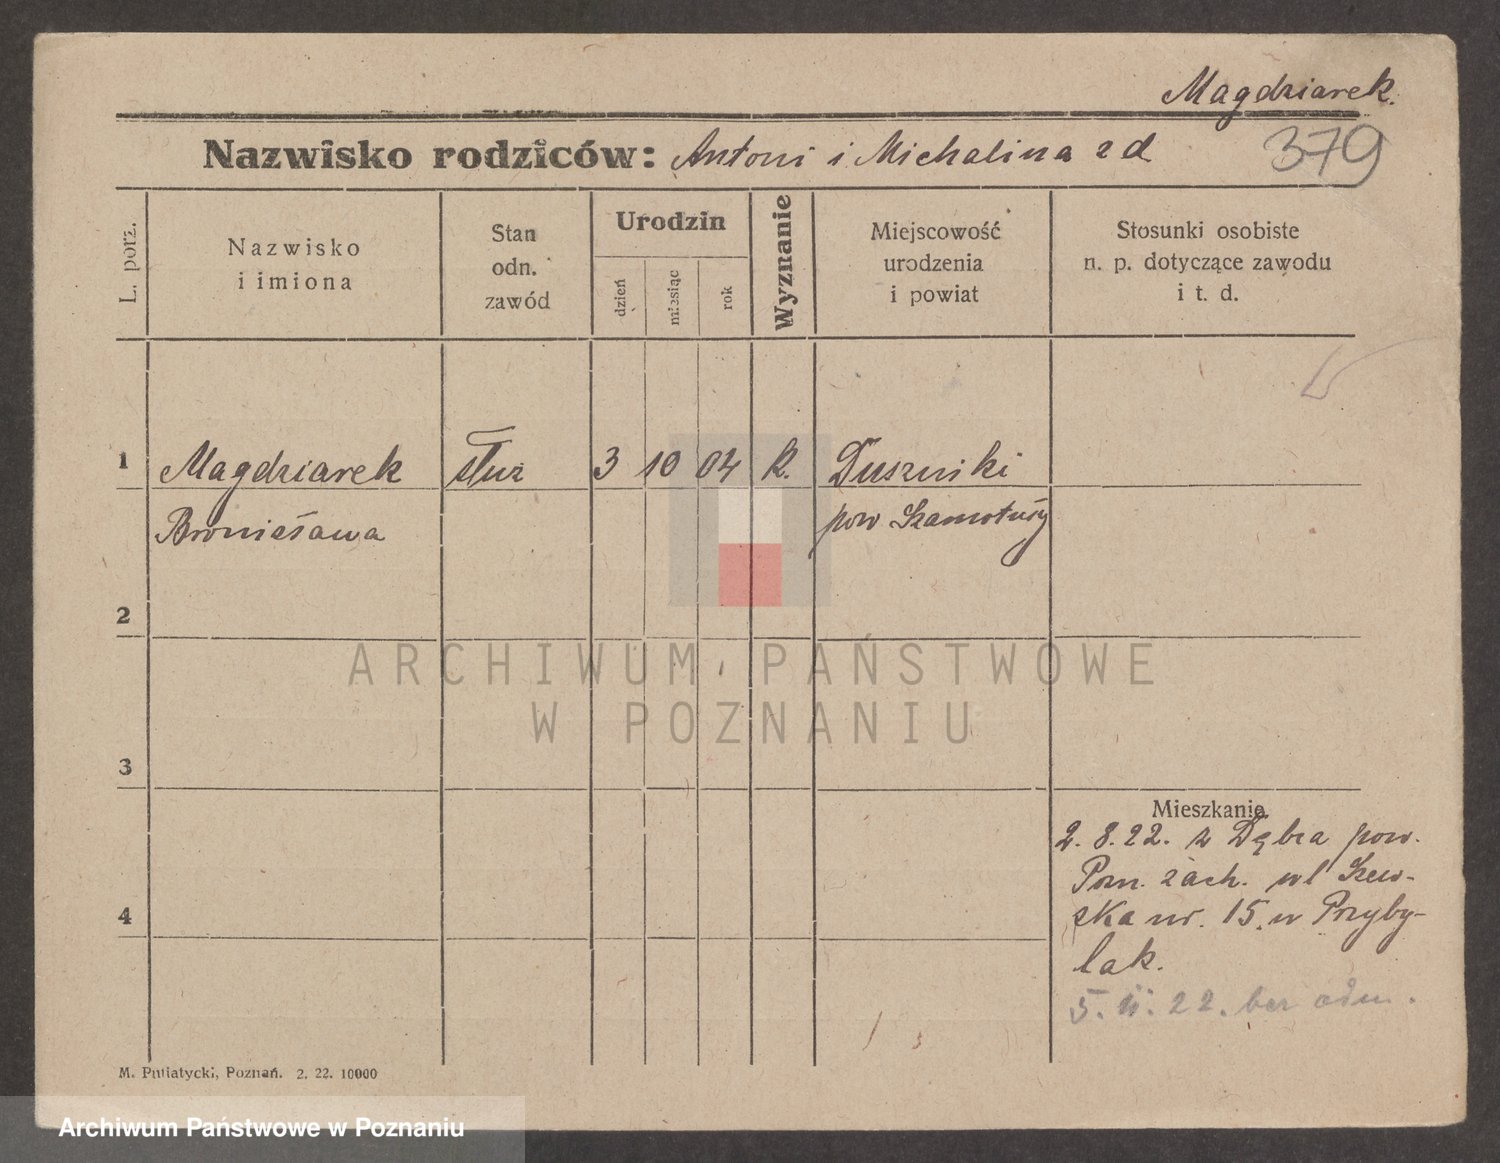 Magdziarek.
379
Nazwisko rodziców: Antoni i Michalina zd
L. porz.
Nazwisko
i imiona
Stan
odn.
zawód
Urodzin
dzień
miesiąc
rok
Wyznanie
Miejscowość
urodzenia
i powiat
Stosunki osobiste
n. p. dotyczące zawodu
i t. d.
1 Magdziarek służ 3 10 04 k. Duszniki
Bronisława pow Szamotuły
2
3
4
Mieszkanie
2. 8. 22. z Dębca pow.
Pozn. zach. ul Szew-
ska nr. 15. u Przyby-
lak.
5. 11. 22. bez odm.
M. Putiatycki, Poznań. 2. 22. 10000
ARCHIWUM PAŃSTWOWE
W POZNANIU
Archiwum Państwowe w Poznaniu